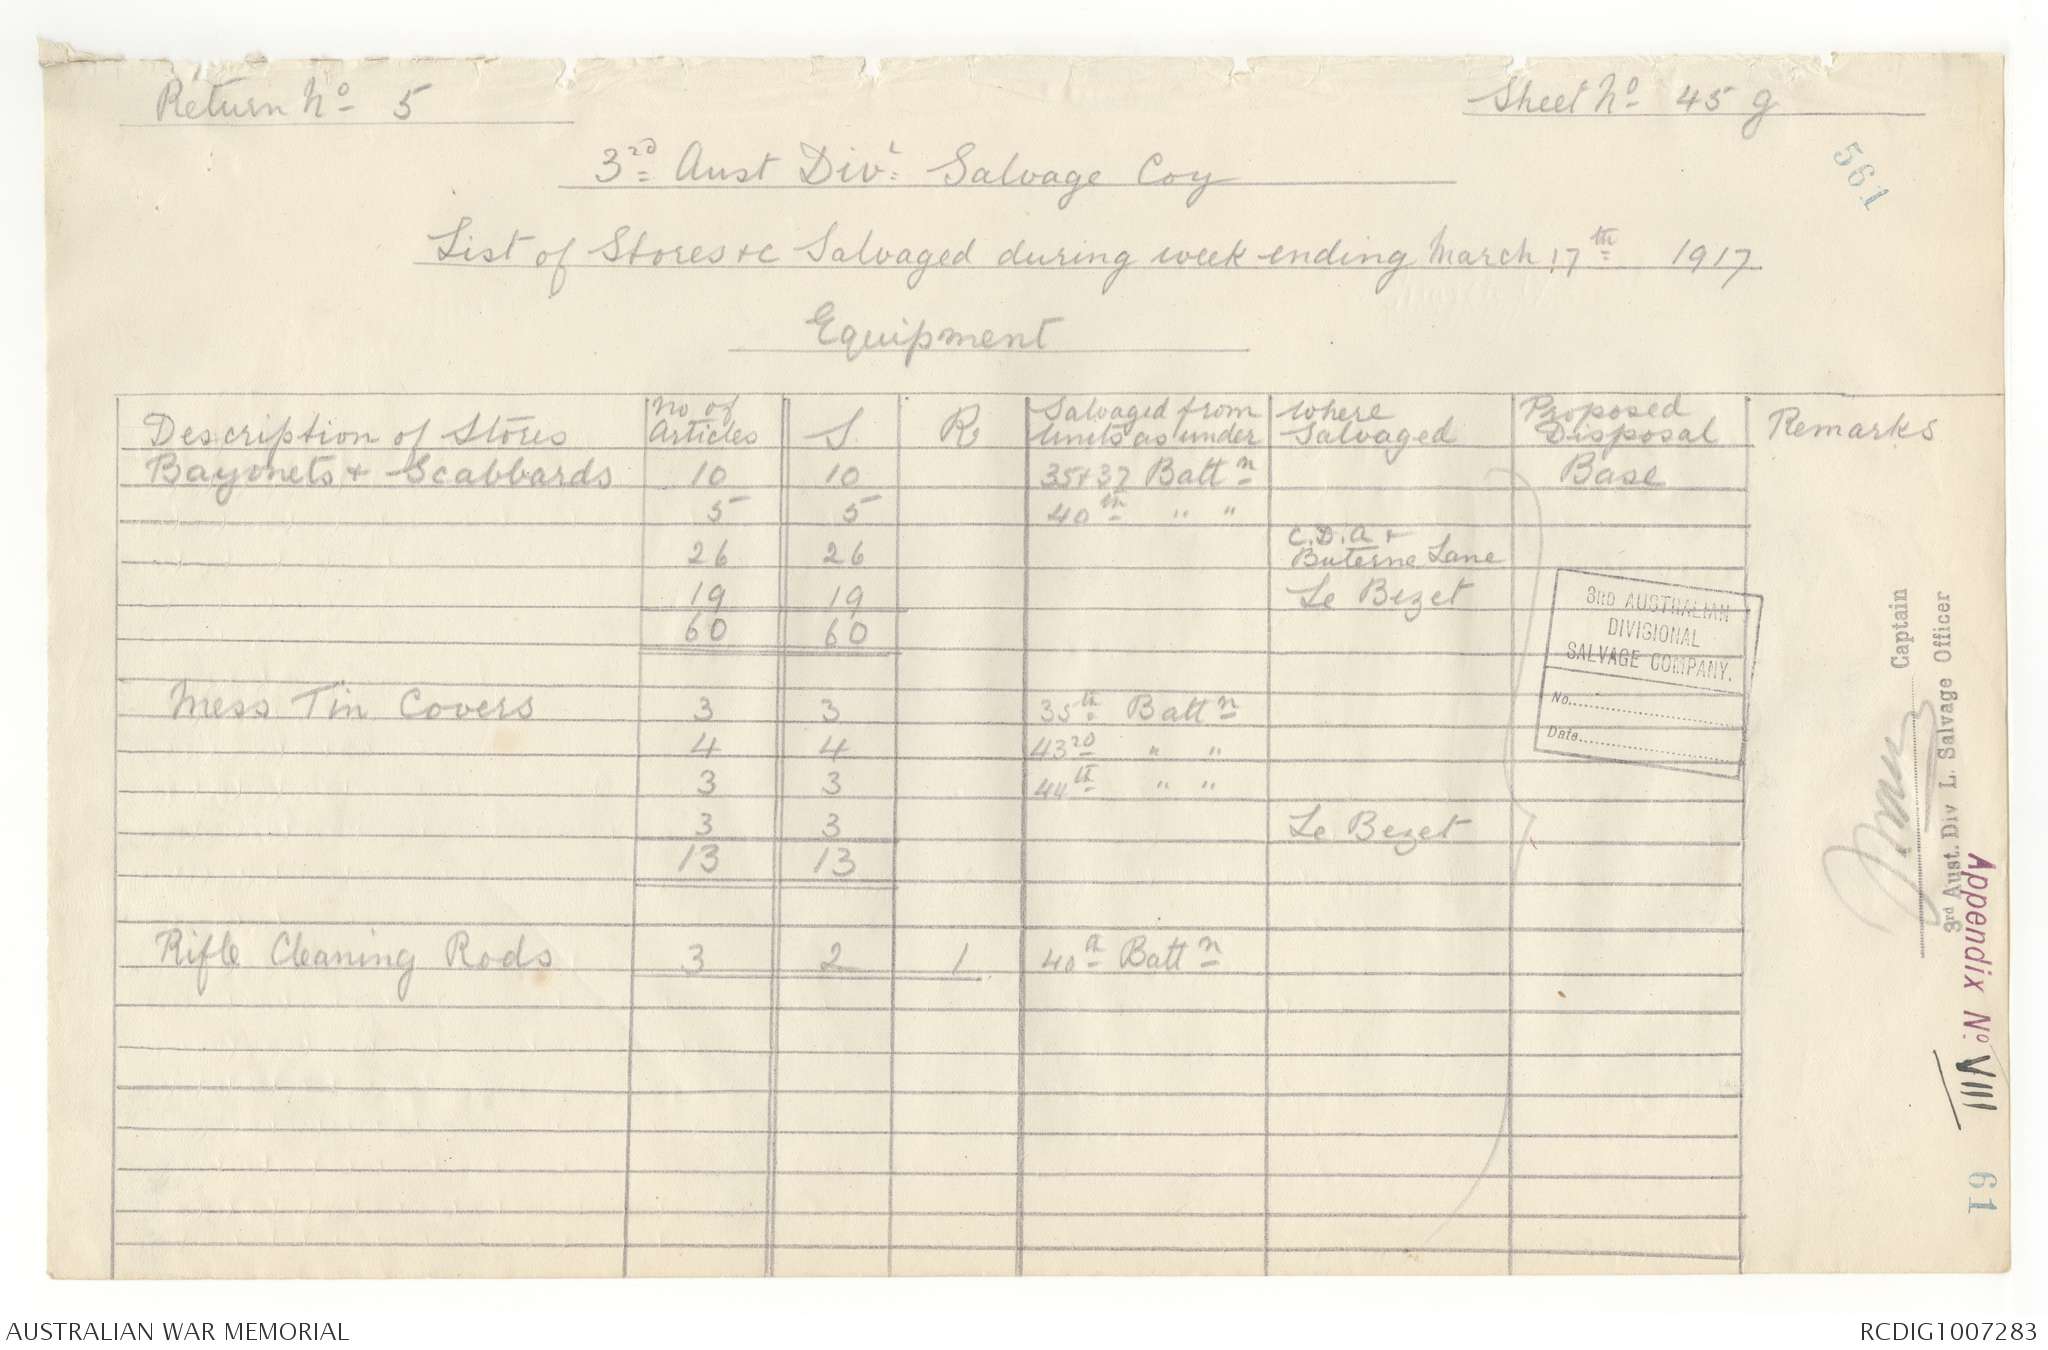 Return No 5
Sheet No 45 g
561
3rd Aust Divl Salvage Coy
List of Stores &c Salvaged during week ending March 17th 1917
Equipment
Description of Stores | No of Articles | S | R | Salvaged from Units as under | Where Salvaged | Proposed Disposal | Remarks
Bayonets & Scabbards 10 10 35&37 Battn Base
5 5 40th " "
26 26 C.D.A & Buterne Lane
19 19 Le Bezet
60 60
Mess Tin Covers 3 3 35th Battn
4 4 43rd " "
3 3 44th " "
3 3 Le Bezet
13 13
Rifle Cleaning Rods 3 2 1 40th Battn
3RD AUSTRALIAN
DIVISIONAL
SALVAGE COMPANY.
No.
Date
Captain
3rd Aust. Div L. Salvage Officer
Appendix No. VIII
61
AUSTRALIAN WAR MEMORIAL
RCDIG1007283